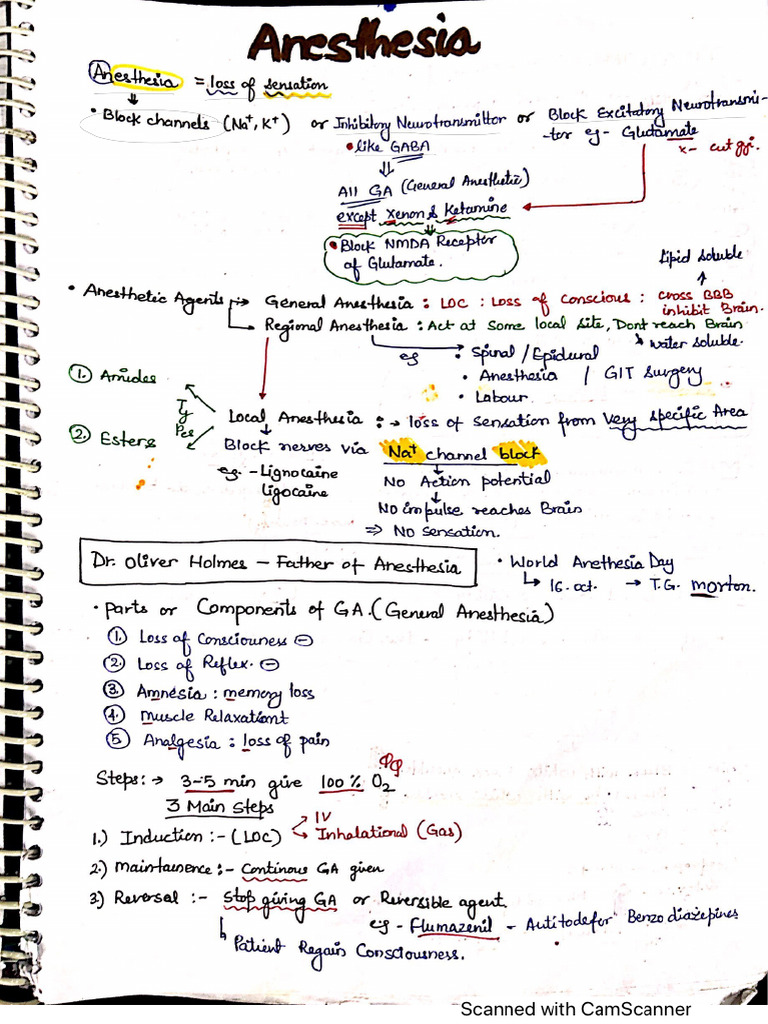 Anesthesia
Anesthesia = loss of sensation
• Block channels (Na+, K+) or Inhibitory Neurotransmittor or Block Excitatory Neurotransmi-
-tor eg- Glutamate
• like GABA
All GA (General Anesthetic)
except Xenon & Ketamine
• Block NMDA Receptor
of Glutamate.
Lipid Soluble
• Anesthetic Agents → General Anesthesia : LOC : Loss of Conscious : cross BBB
inhibit Brain.
→ Regional Anesthesia : Act at Some local site, Dont reach Brain
↳ water soluble.
eg • Spinal / Epidural
• Anesthesia / GIT Surgery
• Labour
① Amides
Types
② Esters
Local Anesthesia : → loss of sensation from very specific Area
Block nerves via Na+ channel block
eg. - Lignocaine
ligocaine
No Action potential
↓
No impulse reaches Brain
⇒ No sensation.
Dr. Oliver Holmes – Father of Anesthesia
• World Anethesia Day
↳ 16. oct. → T.G. morton.
• Parts or Components of GA. (General Anesthesia)
① Loss of Consciouness ⊖
② Loss of Reflex. ⊖
③ Amnesia : memory loss
④ muscle Relaxationt
⑤ Analgesia : loss of pain
Steps: → 3-5 min give 100% O2
3 Main Steps
1.) Induction :- (LOC) → IV
→ Inhalational (Gas)
2.) Maintainence :- Continous GA given
3.) Reversal :- Stop giving GA or Reversible agent.
eg - Flumazenil - Antitodefor Benzodiazepines
↳ Patient Regain Consciousness.
Scanned with CamScanner